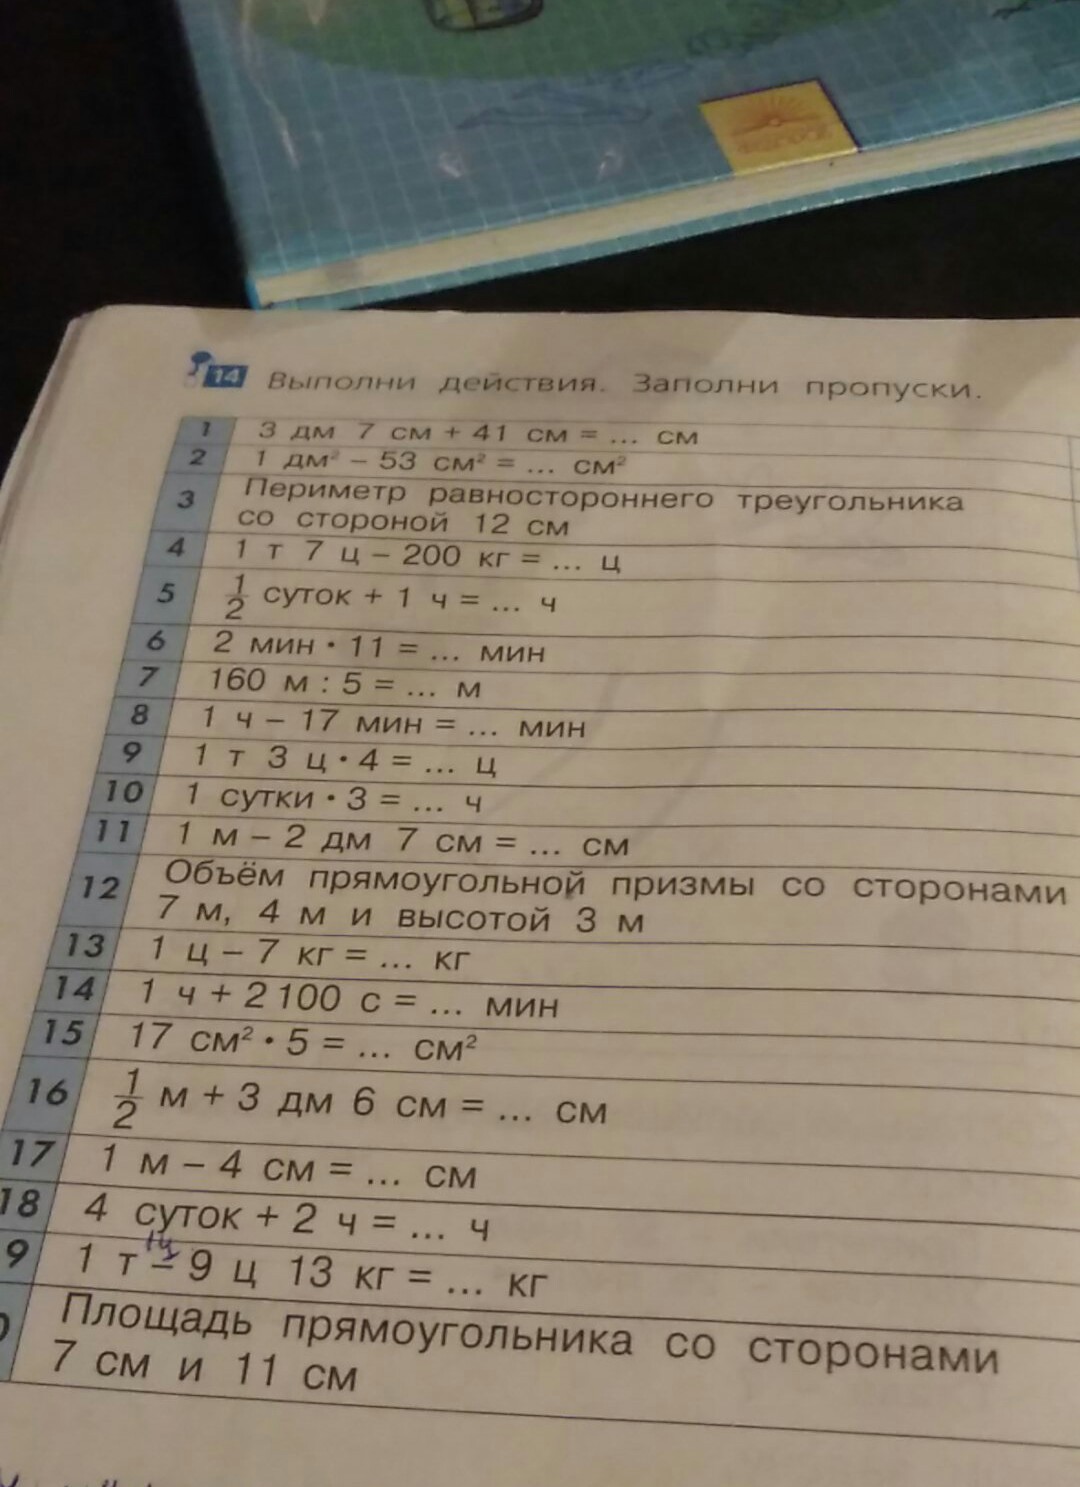 14 Выполни действия. Заполни пропуски.
1 3 дм 7 см + 41 см = ... см
2 1 дм² – 53 см² = ... см²
3 Периметр равностороннего треугольника
со стороной 12 см
4 1 т 7 ц – 200 кг = ... ц
5 1/2 суток + 1 ч = ... ч
6 2 мин · 11 = ... мин
7 160 м : 5 = ... м
8 1 ч – 17 мин = ... мин
9 1 т 3 ц · 4 = ... ц
10 1 сутки · 3 = ... ч
11 1 м – 2 дм 7 см = ... см
12 Объём прямоугольной призмы со сторонами
7 м, 4 м и высотой 3 м
13 1 ц – 7 кг = ... кг
14 1 ч + 2 100 с = ... мин
15 17 см² · 5 = ... см²
16 1/2 м + 3 дм 6 см = ... см
17 1 м – 4 см = ... см
18 4 суток + 2 ч = ... ч
9 1 т – 9 ц 13 кг = ... кг
Площадь прямоугольника со сторонами
7 см и 11 см